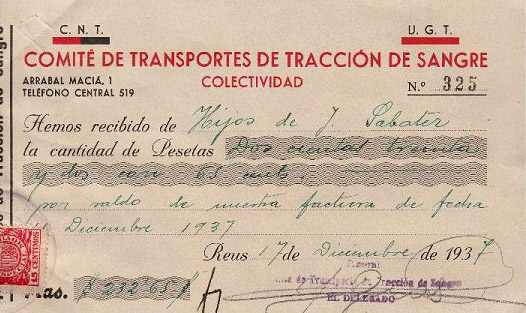 C. N. T.
U. G. T.
COMITÉ DE TRANSPORTES DE TRACCIÓN DE SANGRE
COLECTIVIDAD
ARRABAL MACIÁ, 1
TELÉFONO CENTRAL 519
N.º 325
Hemos recibido de Hijos de J. Sabater
la cantidad de Pesetas Dos cientas treinta
y dos con 65 cents.
por saldo de nuestra factura de fecha
Diciembre 1937
Reus 17 de Diciembre de 1937
de Transportes Tracción de Sangre
EL DELEGADO
15 CENTIMOS
Ptas. 232'65